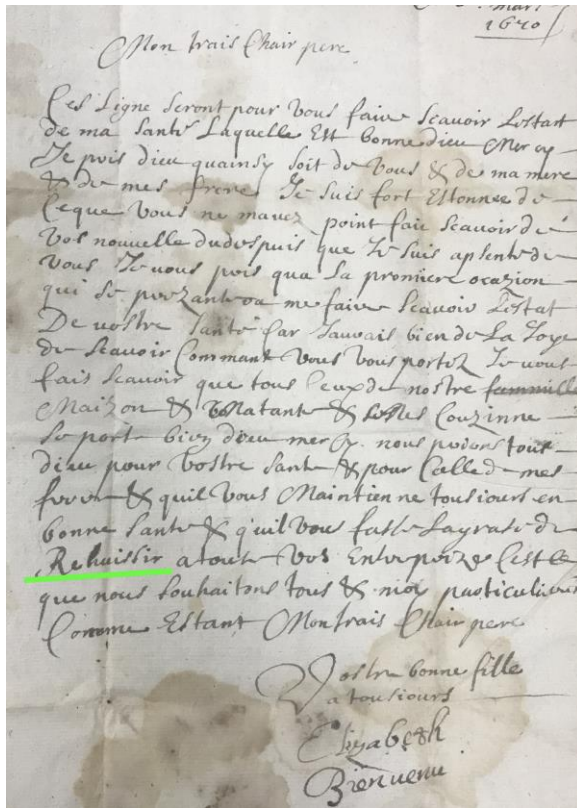 mars
1670
Mon trais Chair pere
Ces Ligne Seront pour Vous faire Scavoir Lestast
de ma Santé Laquelle Est bonne dieu Mercy
Je pris dieu quainsy Soit de Vous & de ma mere
& de mes frere Je Suis fort Estonnee de
Ceque Vous ne mavez point faic Scavoir de
Vos nouvelle dudespuis que Je Suis apsente de
Vous Je vous pris qua La promiere ocazion
qui se prezantera me faire Scavoir Lestat
De vostre Santé Car Jauvais bien de La Joye
de Scavoir Commant Vous Vous portez Je vous
fais Scavoir que tous Ceux de nostre fammille
Maizon & Matante & Mes Couzinne
Se porte bien dieu mercy. nous prions tous
dieu pour Vostre Sante & pour Celle de mes
frere & quil Vous Maintienne tousiours en
bonne Sante & quil vous fasse Lagrase de
Rehuissir atoute Vos Entreprize Cest Ce
que nous Souhaitons tous & moy particulier
Comme Estant Mon trais Chair pere
Vostre bonne fille
a tousiours
Elizabeth
Bienvenu